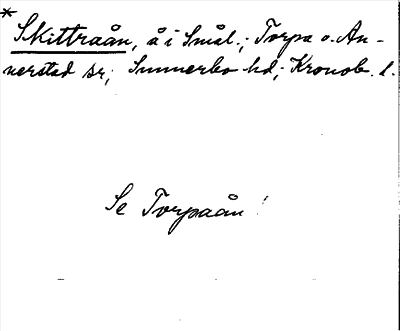 * Skittraån, å i Smål.; Torpa o. An-
nerstad sr; Sunnerbo hd; Kronob. l.
Se Torpaån!